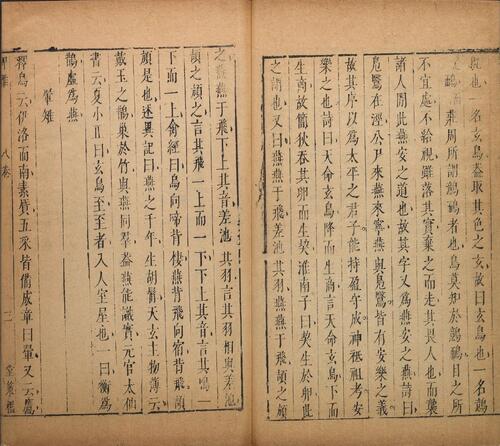 鳦也一名玄鳥蓋取其色之玄故曰玄鳥也一名鷾
鴯莊周所謂鷾鴯者也鳥莫知於鷾鴯目之所
不宜處不給視雖落其實棄之而走其畏人也而襲
諸人閒此燕安之道也故其字又為燕安之燕詩曰
鳧鷖在涇公尸來燕來寧燕與鳧鷖皆有安樂之義
故其序以為太平之君子能持盈守成神祗祖考安
樂之也詩曰天命玄鳥降而生商言天命玄鳥下而
生商故簡狄吞其卵而生契淮南子曰契生於卵此
之謂也又曰燕燕于飛差池其羽燕燕于飛頡之頏
之燕燕于飛下上其音差池其羽言其羽相與差池
頡之頏之言其飛一上而一下下上其音言其鳴一
下而一上禽經曰鳥向啼背棲燕背飛向宿背飛
頏是也述異記曰燕之千年生胡髯天玄主物簿
戴玉之鵲巢於竹與燕同羣蓋燕能識實元官太仙
書云夏小正曰玄鳥至至者入人室星也一曰衡為
鵲虛為燕
翬雉
釋鳥云伊洛而南素質五采皆備成章曰翬又云鷹
八卷
三